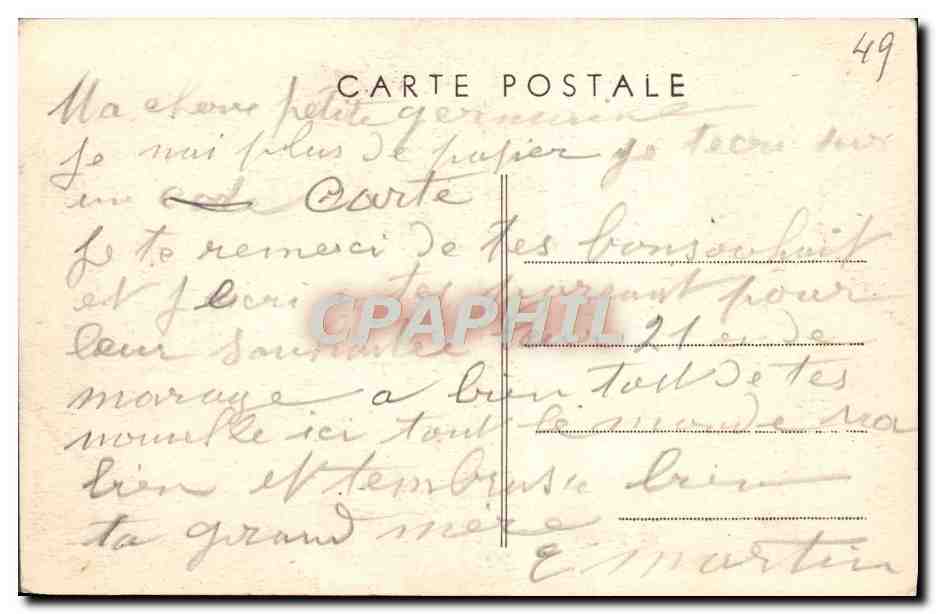 49
CARTE POSTALE
Ma chere petite germaine
Je nai plus de papier je tecri sur
une Carte
Je te remerci de tes bonsouhait
et j ecri a tes parant pour
leur souhaite 21 en de
marage a bien tott de tes
nouvelle ici tout le monde va
bien et tembrase bien
ta grand mère
E martin
CPAPHIL